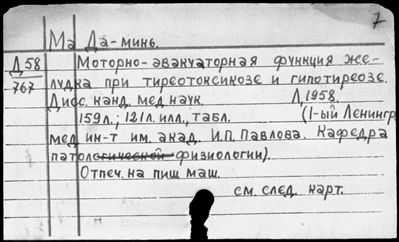 7
Ма Да-минь.
Д58 Моторно-эвакуаторная функция же-
767 лудка при тиреотоксикозе и гипотиреозе.
Дисс. канд. мед. наук. Л, 1958.
159л.; 121л. илл., табл. (1-ый Ленингр.
мед. ин-т им. акад. И.П. Павлова. Кафедра
патологической физиологии).
Отпеч. на пиш. маш.
см. след. карт.